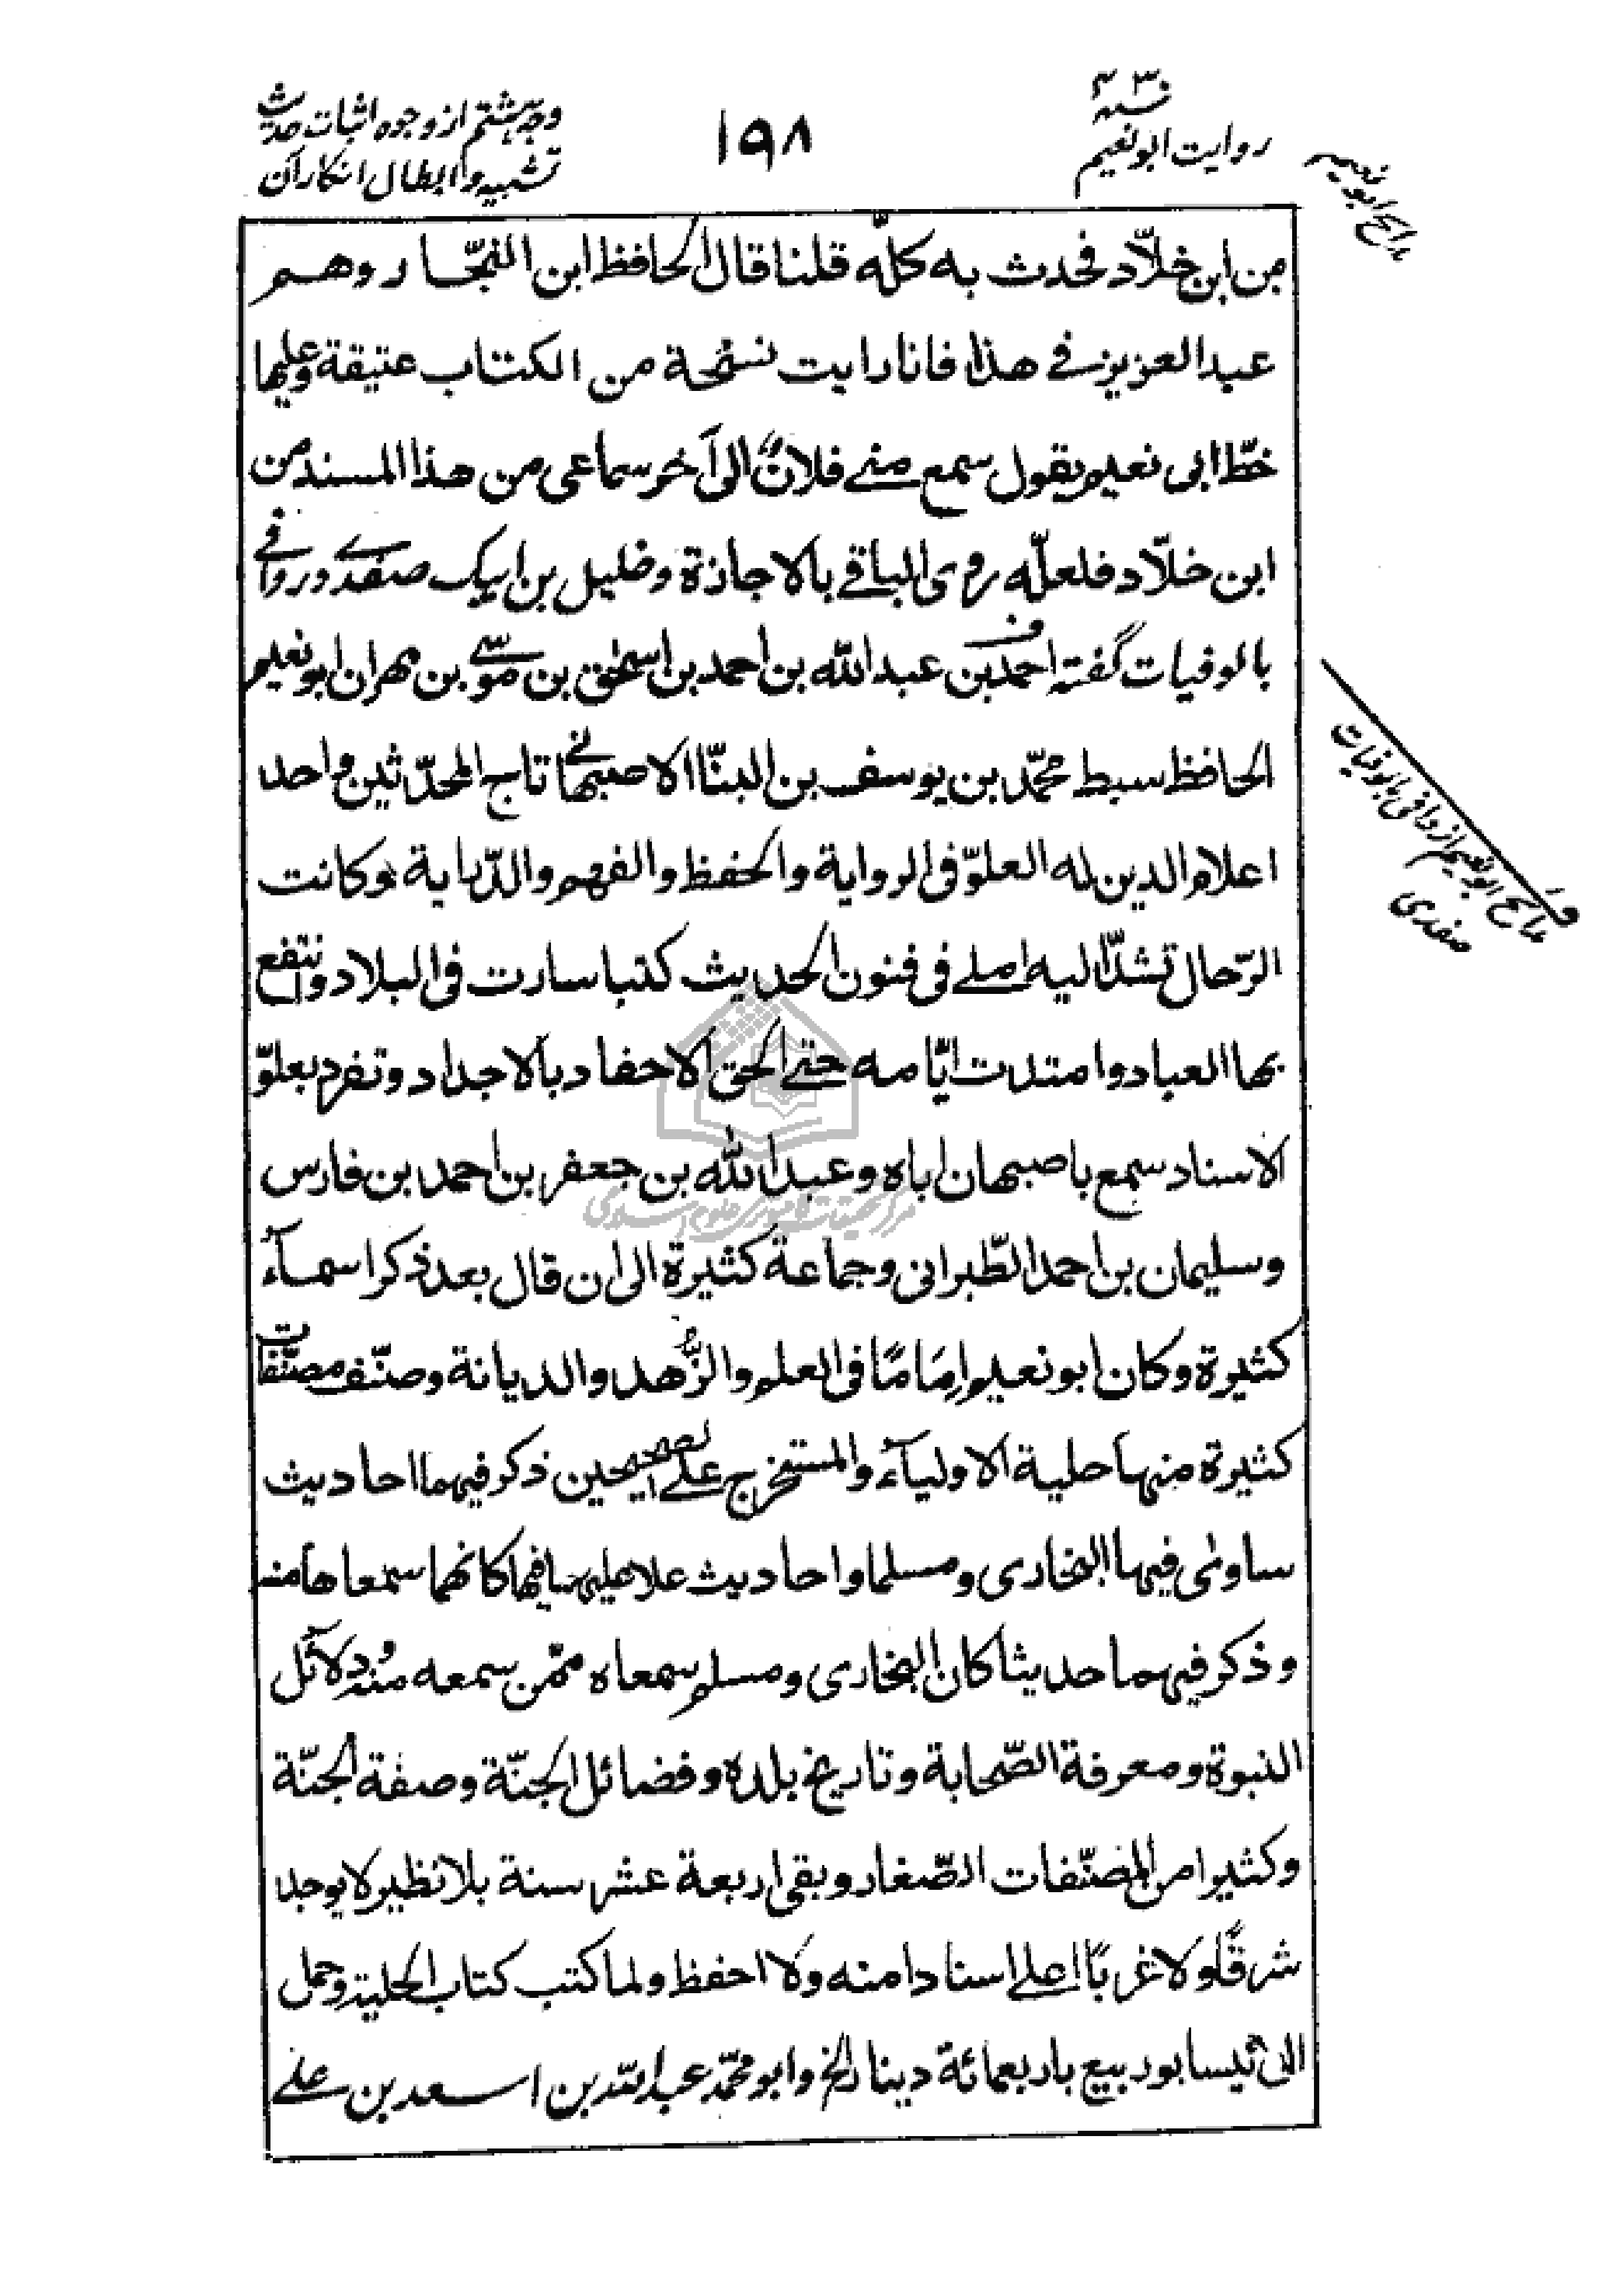 روایت ابو نعیم
۱۹۸
وجه هشتم از وجوه اثبات حدیث
تشبیه و ابطال انکار آن
مدایح ابو نعیم
من ابن خلّاد فحدث به كلّه قلنا قال الحافظ ابن النجّار وهم
عبد العزيز فے هذا فانا رايت نسخة من الكتاب عتيقة وعليها
خطّ ابی نعیم يقول سمع منے فلان الى آخر سماعی من هذا المسند من
ابن خلّاد فلعلّه روى الباقے بالاجازة وخليل بن ايبك صفدے در وافے
بالوفيات گفته احمد بن عبد الله بن احمد بن اسحٰق بن موسے بن مهران ابو نعيم
الحافظ سبط محمّد بن يوسف بن البنّا الاصبهانے تاج المحدّثين واحد
اعلام الدين له العلوّ فی الرواية والحفظ والفهم والدّراية وكانت
الرّحال تشدّ اليه املے فی فنون الحديث كتبا سارت فی البلاد وانتفع
بها العباد وامتدت ايّامه حتے الحق الاحفاد بالاجداد وتفرد بعلوّ
الاسناد سمع باصبهان اباه وعبد الله بن جعفر بن احمد بن فارس
وسليمان بن احمد الطّبرانی وجماعة كثيرة الى ان قال بعد ذكر اسمآء
كثيرة وكان ابو نعيم اِمَامًا فی العلم والزُّهد والديانة وصنّف مصنّفات
كثيرة منها حلية الاوليآء والمستخرج علے الصحيحين ذكر فيهما احاديث
ساوٰى فيها البخاری ومسلما واحاديث علا عليهما فيها كانهما سمعاها منه
وذكر فيهما حديثا كان البخاری ومسلم سمعاه ممّن سمعه منه ودلآئل
النبوة ومعرفة الصّحابة وتاريخ بلده وفضائل الجنّة وصفة الجنّة
وكثيرا من المصنّفات الصّغار وبقی اربعة عشر سنة بلا نظير لا يوجد
شرقًا ولا غربًا اعلے اسنادا منه ولا احفظ ولما كتب كتاب الحلية وحمل
الى نيسابور بيع باربعمائة دينار الخ وابو محمّد عبد الله بن اسعد بن علے
مدایح ابو نعیم از وافی بالوفیات
صفدی
مرکز تحقیقات کامپیوتری علوم اسلامی